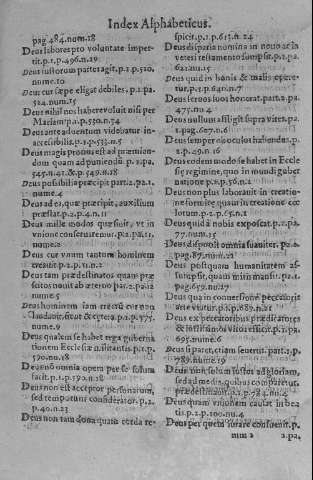 Index Alphabeticus.
pag.484.num.18
Deus labores pro voluntate imper-
tit.p.1.p.496.n.19
Deus iustorum partes agit.p.2.p.520.
nume.10
Deus cur sæpe eligat debiles.p.1.pa.
524.num.15
Deus nihil nos habere voluit nisi per
Mariam.p.1.p.530.n.74
Deus ante aduentum videbatur in-
accessibilis.p.1.p.533.n.7
Deus magis pronus est ad præmian-
dum quam ad puniendū.p.2.pa.
545.n.41.& p.549.n.18
Deus possibilia præcipit part.2.pa.1.
nume.4
Deus ad ea, quæ præcipit, auxilium
præstat.p.2.p.4.n.11
Deus mille modos quæsiuit, vt in
vnione conseruaremur.p.2.pa.11.
nume.2
Deus cur vnum tantum hominem
creauit.p.2.p.11.n.2
Deus tam prædestinatos quam præ
scitos nouit ab æterno par.2.pa.12
nume.5
Deus hominem iam creatū cur non
laudauit, sicut & cętera.p.1.p.575.
nume.9
Deus qualem se habet erga guberna
tionem Ecclesiæ militantis.p.1.p.
590.nu.18
Deus nō omnia opera per se solum
facit.p.1.p.590.n.18
Deus non est acceptor personarum,
sed temporum considerator.p.2.
p.40.n.23
Deus non tam dona quam corda re-
spicit.p.1.p.613.n.24
Deus disparia nomina in nouo ac in
veteri testamento sumpsit.p.2.pa.
62.nu.15
Deus quid in bonis & malis opere-
tur.p.1.p.641.n.7
Deus seruos suos honorat.part.2.pa.
77.nu.4
Deus nullum affligit supra vires.pa.
2.pag.607.n.6
Deus semper nos oculos habendus.p.
2.p.49.n.16
Deus eodem modo se habet in Eccle
się regimine, quo in mundi guber
natione.p.2.p.56.n.2
Deus non plus laborauit in creatio-
ne formicę quam in creatione cœ
lorum.p.2.p.65.n.2
Deus quid à nobis exposcat.p.2.pa.
77.num.15
Deus disponit omnia suauiter.pa.2.
pag.87.num.21
Deus postquam humanitatem as-
sumpsit, quam mitis mansit.pa.1.
pag.659.nu.27
Deus qua in conuersione peccatoris
arte vtatur.p.1.p.687.n.21
Deus ex peccatoribus prædicatores
& iustissimos viros efficit.p.1.pa.
695.nume.6
Deus si parcet, etiam seuerit.part.1.p.
789.nume.19
Deus non solum iustos ad gloriam,
sed ad media, quibus comparetur,
prædestinauit.p.1.p.784.nu.4
Deus quam visionem caulat in bea
tis.p.2.p.100.nu.4
Deus per quem iurare consueuit.p.
mm 2
2.pa,